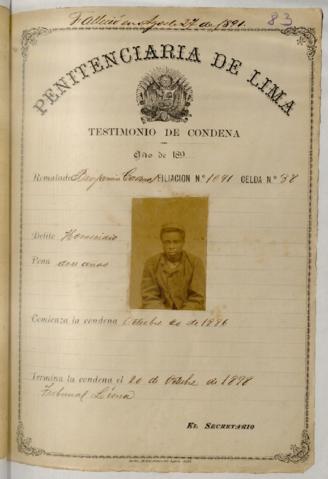 Falleció en Agosto 27 de 1891.
83
PENITENCIARIA DE LIMA
TESTIMONIO DE CONDENA
Año de 189
Rematado Benjamin FILIACION N.º 1091 CELDA N.º 38
Delito Homicidio
Pena doce años
Comienza la condena Octubre 20 de 1886
Termina la condena el 20 de Octubre de 1898
Tribunal Lima
EL SECRETARIO